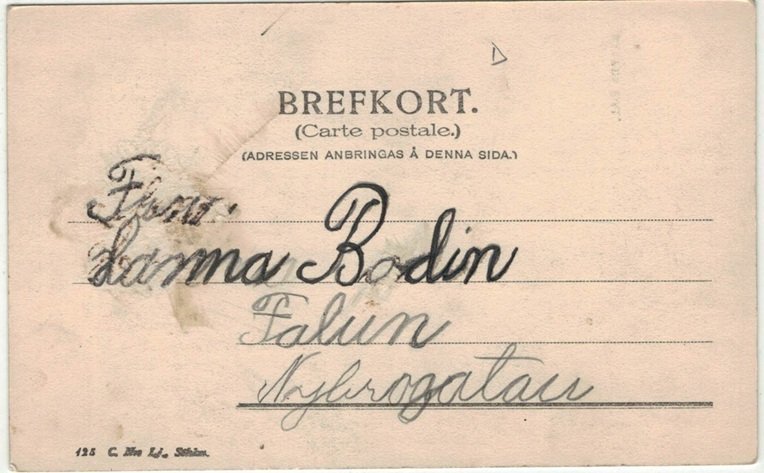 BREFKORT.
(Carte postale.)
(ADRESSEN ANBRINGAS Å DENNA SIDA.)
Hanna Bodin
Falun
Nybrogatan
125 C. Lj., Sthlm.